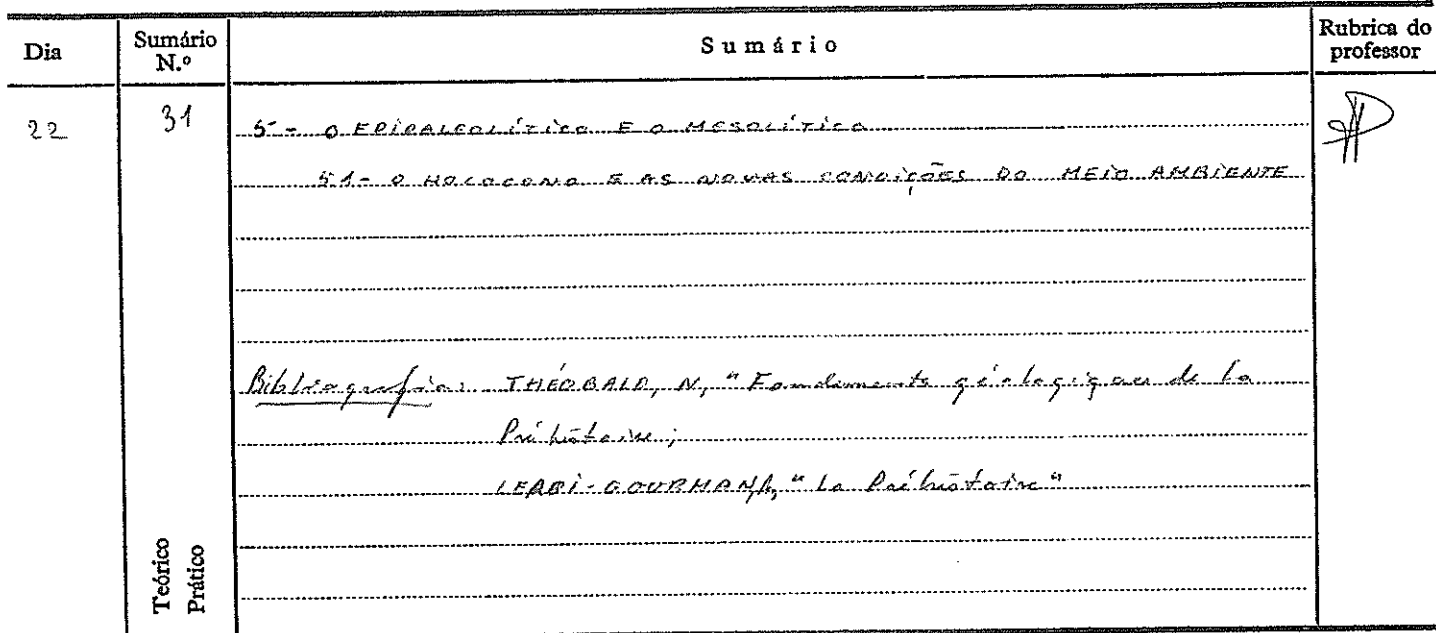 Dia
Sumário N.º
Sumário
Rubrica do professor
22
31
5 - O EPIPALEOLÍTICO E O MESOLÍTICO
5.1 - O HOLOCENO E AS NOVAS CONDIÇÕES DO MEIO AMBIENTE
Bibliografia: THÉOBALD, N, "Fondements géologiques de la
Préhistoire;
LEROI-GOURHAN, A, "La Préhistoire"
Teórico
Prático